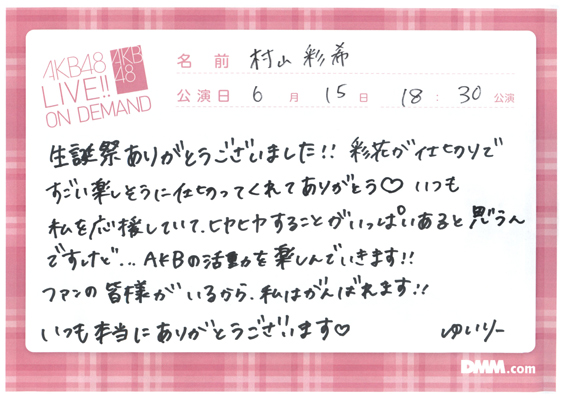 AKB48
LIVE!!
ON DEMAND
AKB
48
名 前 村山 彩希
公演日 6 月 15 日 18 : 30 公演
生誕祭ありがとうございました!! 彩花が仕切りで
すごい楽しそうに仕切ってくれてありがとう♡ いつも
私を応援していて、ヒヤヒヤすることがいっぱいあると思うん
ですけど... AKBの活動を楽しんでいきます!!
ファンの皆様がいるから、私はがんばれます!!
いつも本当にありがとうございます♡ ゆいりー
DMM.com